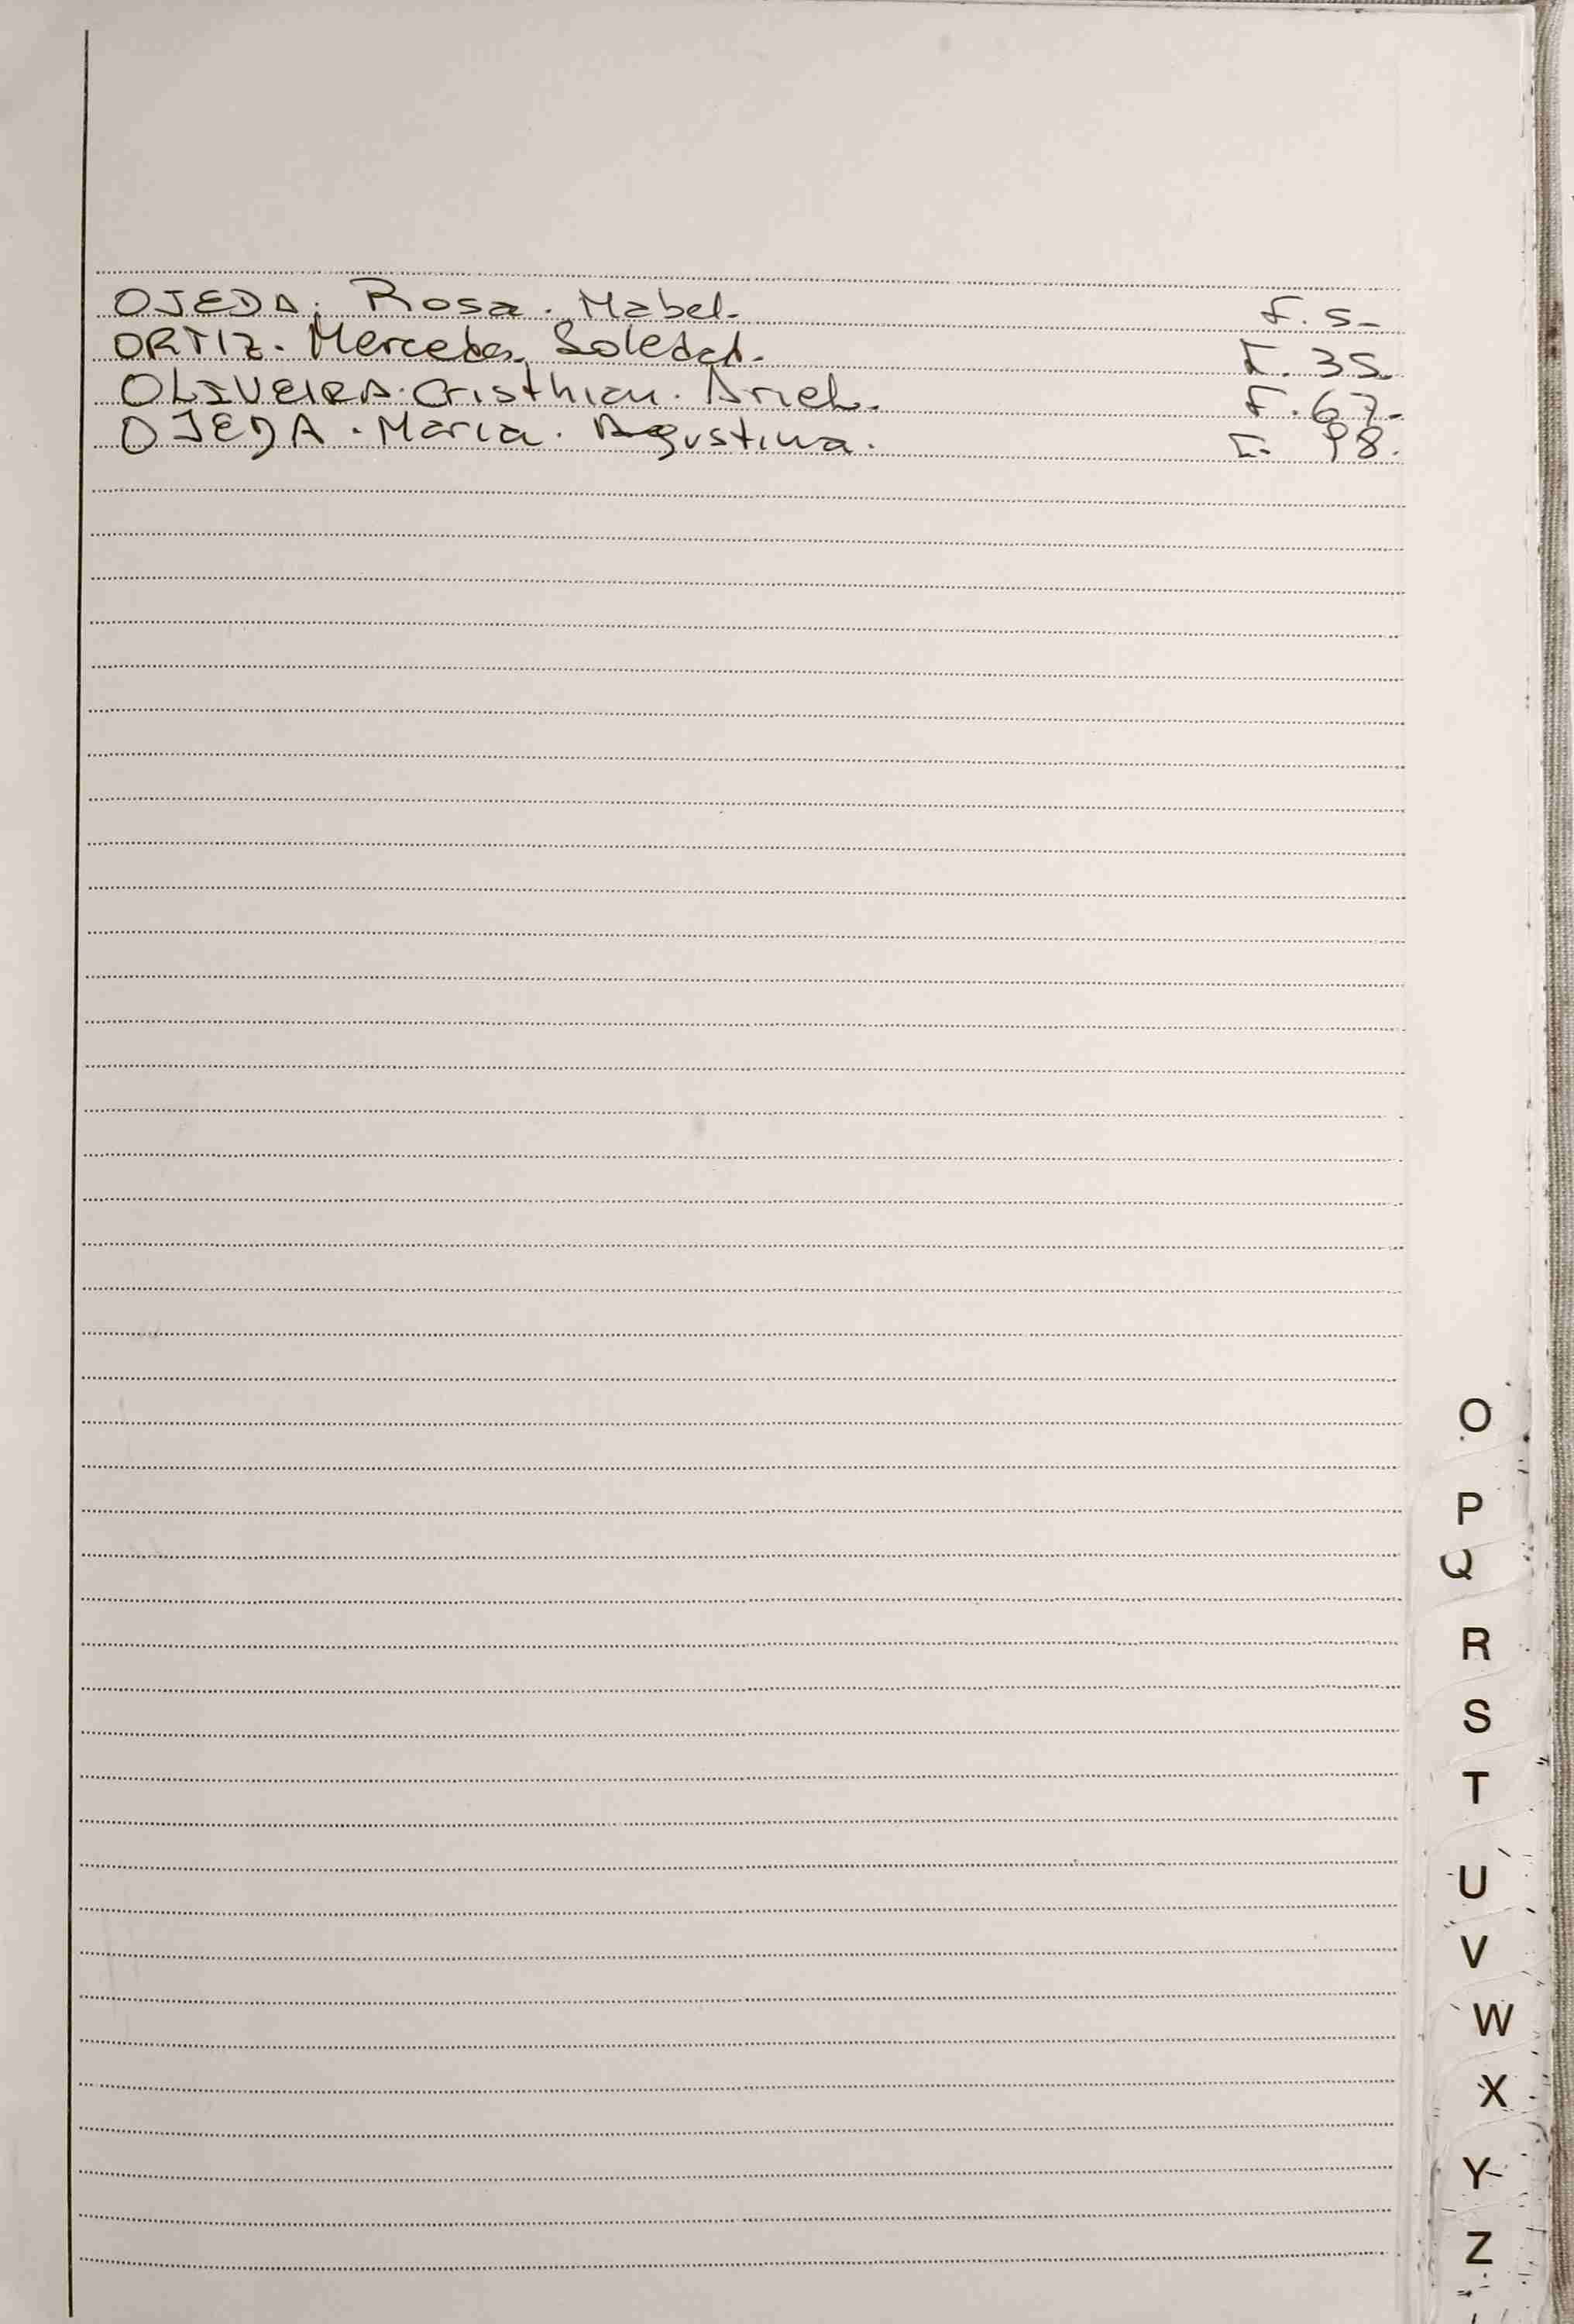 OJEDA. Rosa. Mabel. F. 5-
ORTIZ. Mercedes. Soledad. F. 35.
OLIVEIRA. Cristhian. Ariel. F. 67.
OJEDA. Maria. Agustina. F. 98.
O
P
Q
R
S
T
U
V
W
X
Y
Z